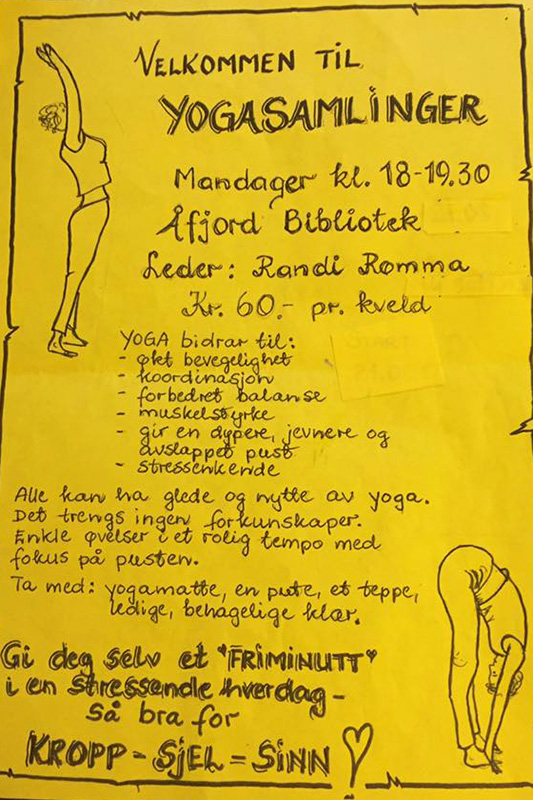 VELKOMMEN TIL
YOGASAMLINGER
Mandager kl. 18-19.30
Åfjord Bibliotek
Leder: Randi Rømma
Kr. 60.- pr. kveld
YOGA bidrar til:
- økt bevegelighet
- koordinasjon
- forbedret balanse
- muskelstyrke
- gir en dypere, jevnere og
avslappet pust
- stressenkende
Alle kan ha glede og nytte av yoga.
Det trengs ingen forkunskaper.
Enkle øvelser i et rolig tempo med
fokus på pusten.
Ta med: yogamatte, en pute, et teppe,
ledige, behagelige klær.
Gi deg selv et "FRIMINUTT"
i en stressende hverdag -
så bra for
KROPP - SJEL = SINN !